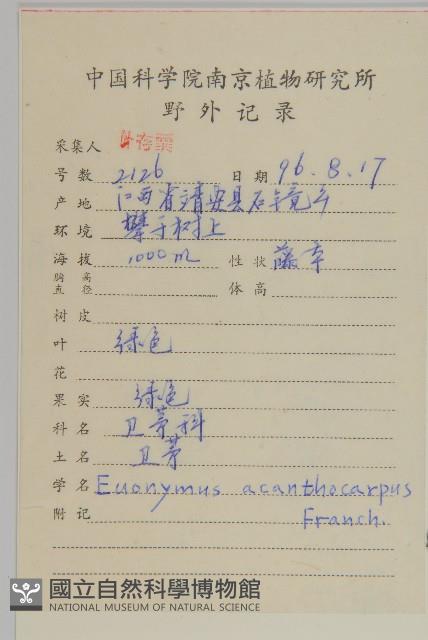 中国科学院南京植物研究所
野外记录
采集人
号数 2126 日期 96.8.17
产地 江西省靖安县石境乡
环境 攀于树上
海拔 1000m 性状 藤本
胸高直径 体高
树皮
叶 绿色
花
果实 绿色
科名 卫茅科
土名 卫茅
学名 Euonymus acanthocarpus
附记 Franch.
國立自然科學博物館
NATIONAL MUSEUM OF NATURAL SCIENCE